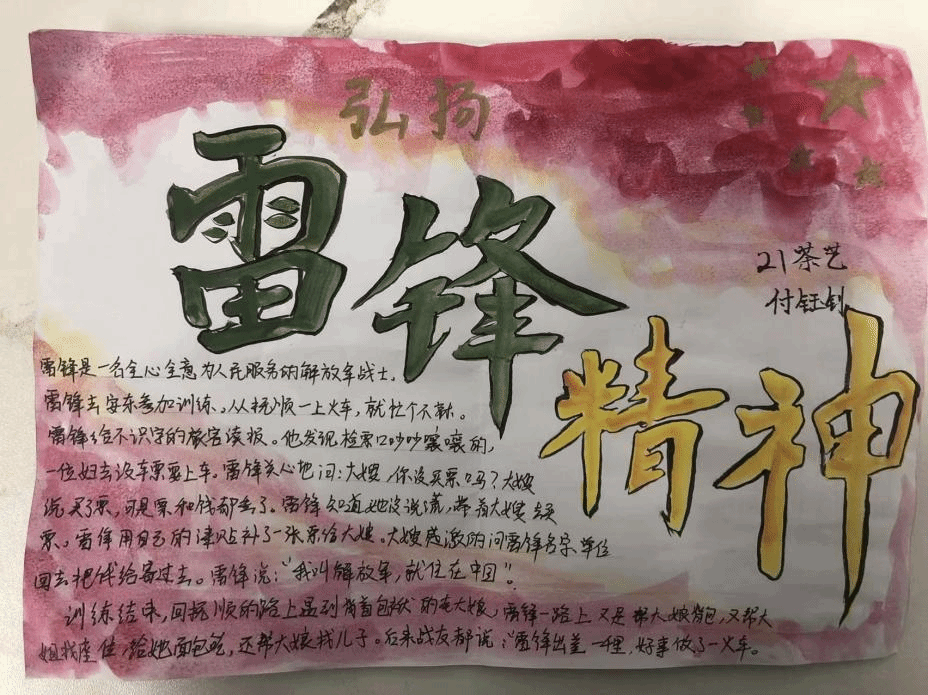 弘扬
雷锋
精神
21茶艺
付钰钊
雷锋是一名全心全意为人民服务的解放军战士。
雷锋去安东参加训练。从抚顺一上火车,就忙个不歇。
雷锋给不识字的旅客读报。他发现检票口吵吵嚷嚷的,
一位妇去没车票要上车。雷锋关心地问:大嫂,你没买票吗?大嫂
说买了票,可是票和钱都丢了。雷锋知道她没说谎,带着大嫂
票。雷锋用自己的津贴补了一张票给大嫂。大嫂感激的问雷锋名字,单位
回去把钱给寄过去。雷锋说:“我叫解放军,就住在中国”。
训练结束,回抚顺的路上遇到背着包袱的老大娘,雷锋一路上又是帮大娘背包,又帮大
娘找座位,给她面包吃,还帮大娘找儿子。后来战友都说:“雷锋出差一千里,好事做了一火车。